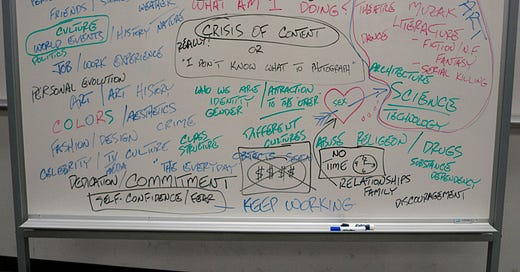 FRIENDS/
WEATHER
WHAT AM I DOING?
THEATRE
MUZAK
ART
CULTURE
WORLD EVENTS/HISTORY
NATURE
POLITICS
REALLY?
CRISIS OF CONTENT
OR
"I DON'T KNOW WHAT TO PHOTOGRAPH"
LITERATURE
- FICTION/N.F
FANTASY
- SERIAL KILLING
DANCE
JOB/WORK EXPERIENCE
PERSONAL EVOLUTION
ART/ART HISTORY
ARCHITECTURE
SCIENCE
TECHNOLOGY
WHO WE ARE
IDENTITY
GENDER
ATTRACTION
TO THE OTHER
SEX
COLORS/AESTHETICS
FASHION/DESIGN
CRIME
CLASS
STRUCTURE
DIFFERENT
CULTURES
ABUSE
RELIGION/DRUGS
SUBSTANCE
DEPENDENCY
CELEBRITY/TV CULTURE
MEDIA
"THE EVERYDAY
OBJECTS
$$$$
NO
TIME
RELATIONSHIPS
FAMILY
DISCOURAGEMENT
DEDICATION/COMMITMENT
SELF-CONFIDENCE/FEAR
KEEP WORKING